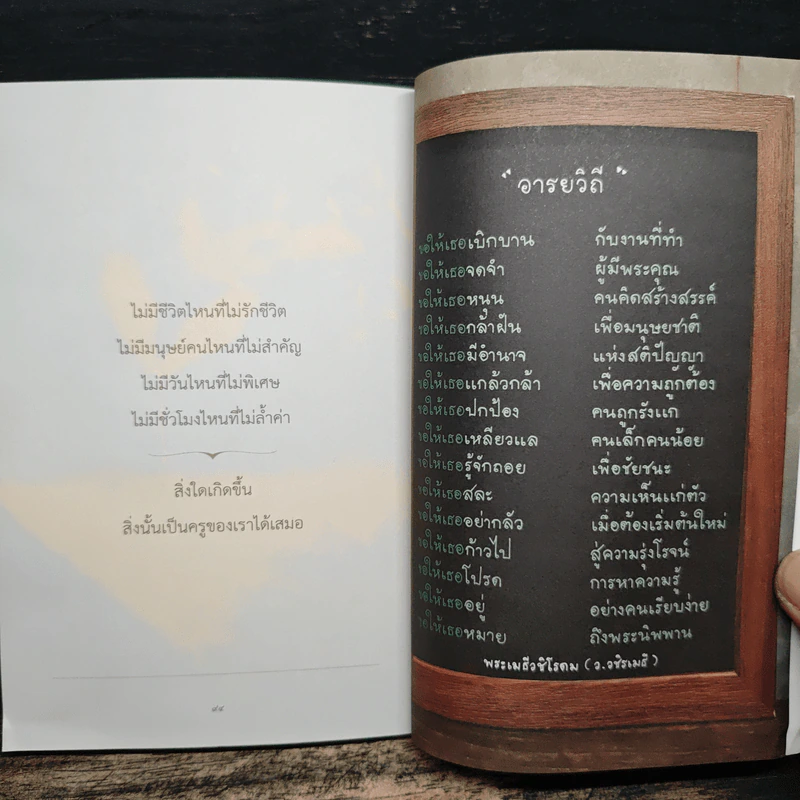 ไม่มีชีวิตไหนที่ไม่รักชีวิต
ไม่มีมนุษย์คนไหนที่ไม่สำคัญ
ไม่มีวันไหนที่ไม่พิเศษ
ไม่มีชั่วโมงไหนที่ไม่ล้ำค่า
สิ่งใดเกิดขึ้น
สิ่งนั้นเป็นครูของเราได้เสมอ
"อารยวิถี"
ขอให้เธอเบิกบาน กับงานที่ทำ
ขอให้เธอจดจำ ผู้มีพระคุณ
ขอให้เธอหนุน คนคิดสร้างสรรค์
ขอให้เธอกล้าฝัน เพื่อมนุษยชาติ
ขอให้เธอมีอำนาจ แห่งสติปัญญา
ขอให้เธอแกล้วกล้า เพื่อความถูกต้อง
ขอให้เธอปกป้อง คนถูกรังแก
ขอให้เธอเหลียวแล คนเล็กคนน้อย
ขอให้เธอรู้จักถอย เพื่อชัยชนะ
ขอให้เธอสละ ความเห็นแก่ตัว
ขอให้เธออย่ากลัว เมื่อต้องเริ่มต้นใหม่
ขอให้เธอก้าวไป สู่ความรุ่งโรจน์
ขอให้เธอโปรด การหาความรู้
ขอให้เธออยู่ อย่างคนเรียบง่าย
ขอให้เธอหมาย ถึงพระนิพพาน
พระเมธีวชิโรดม (ว.วชิรเมธี)